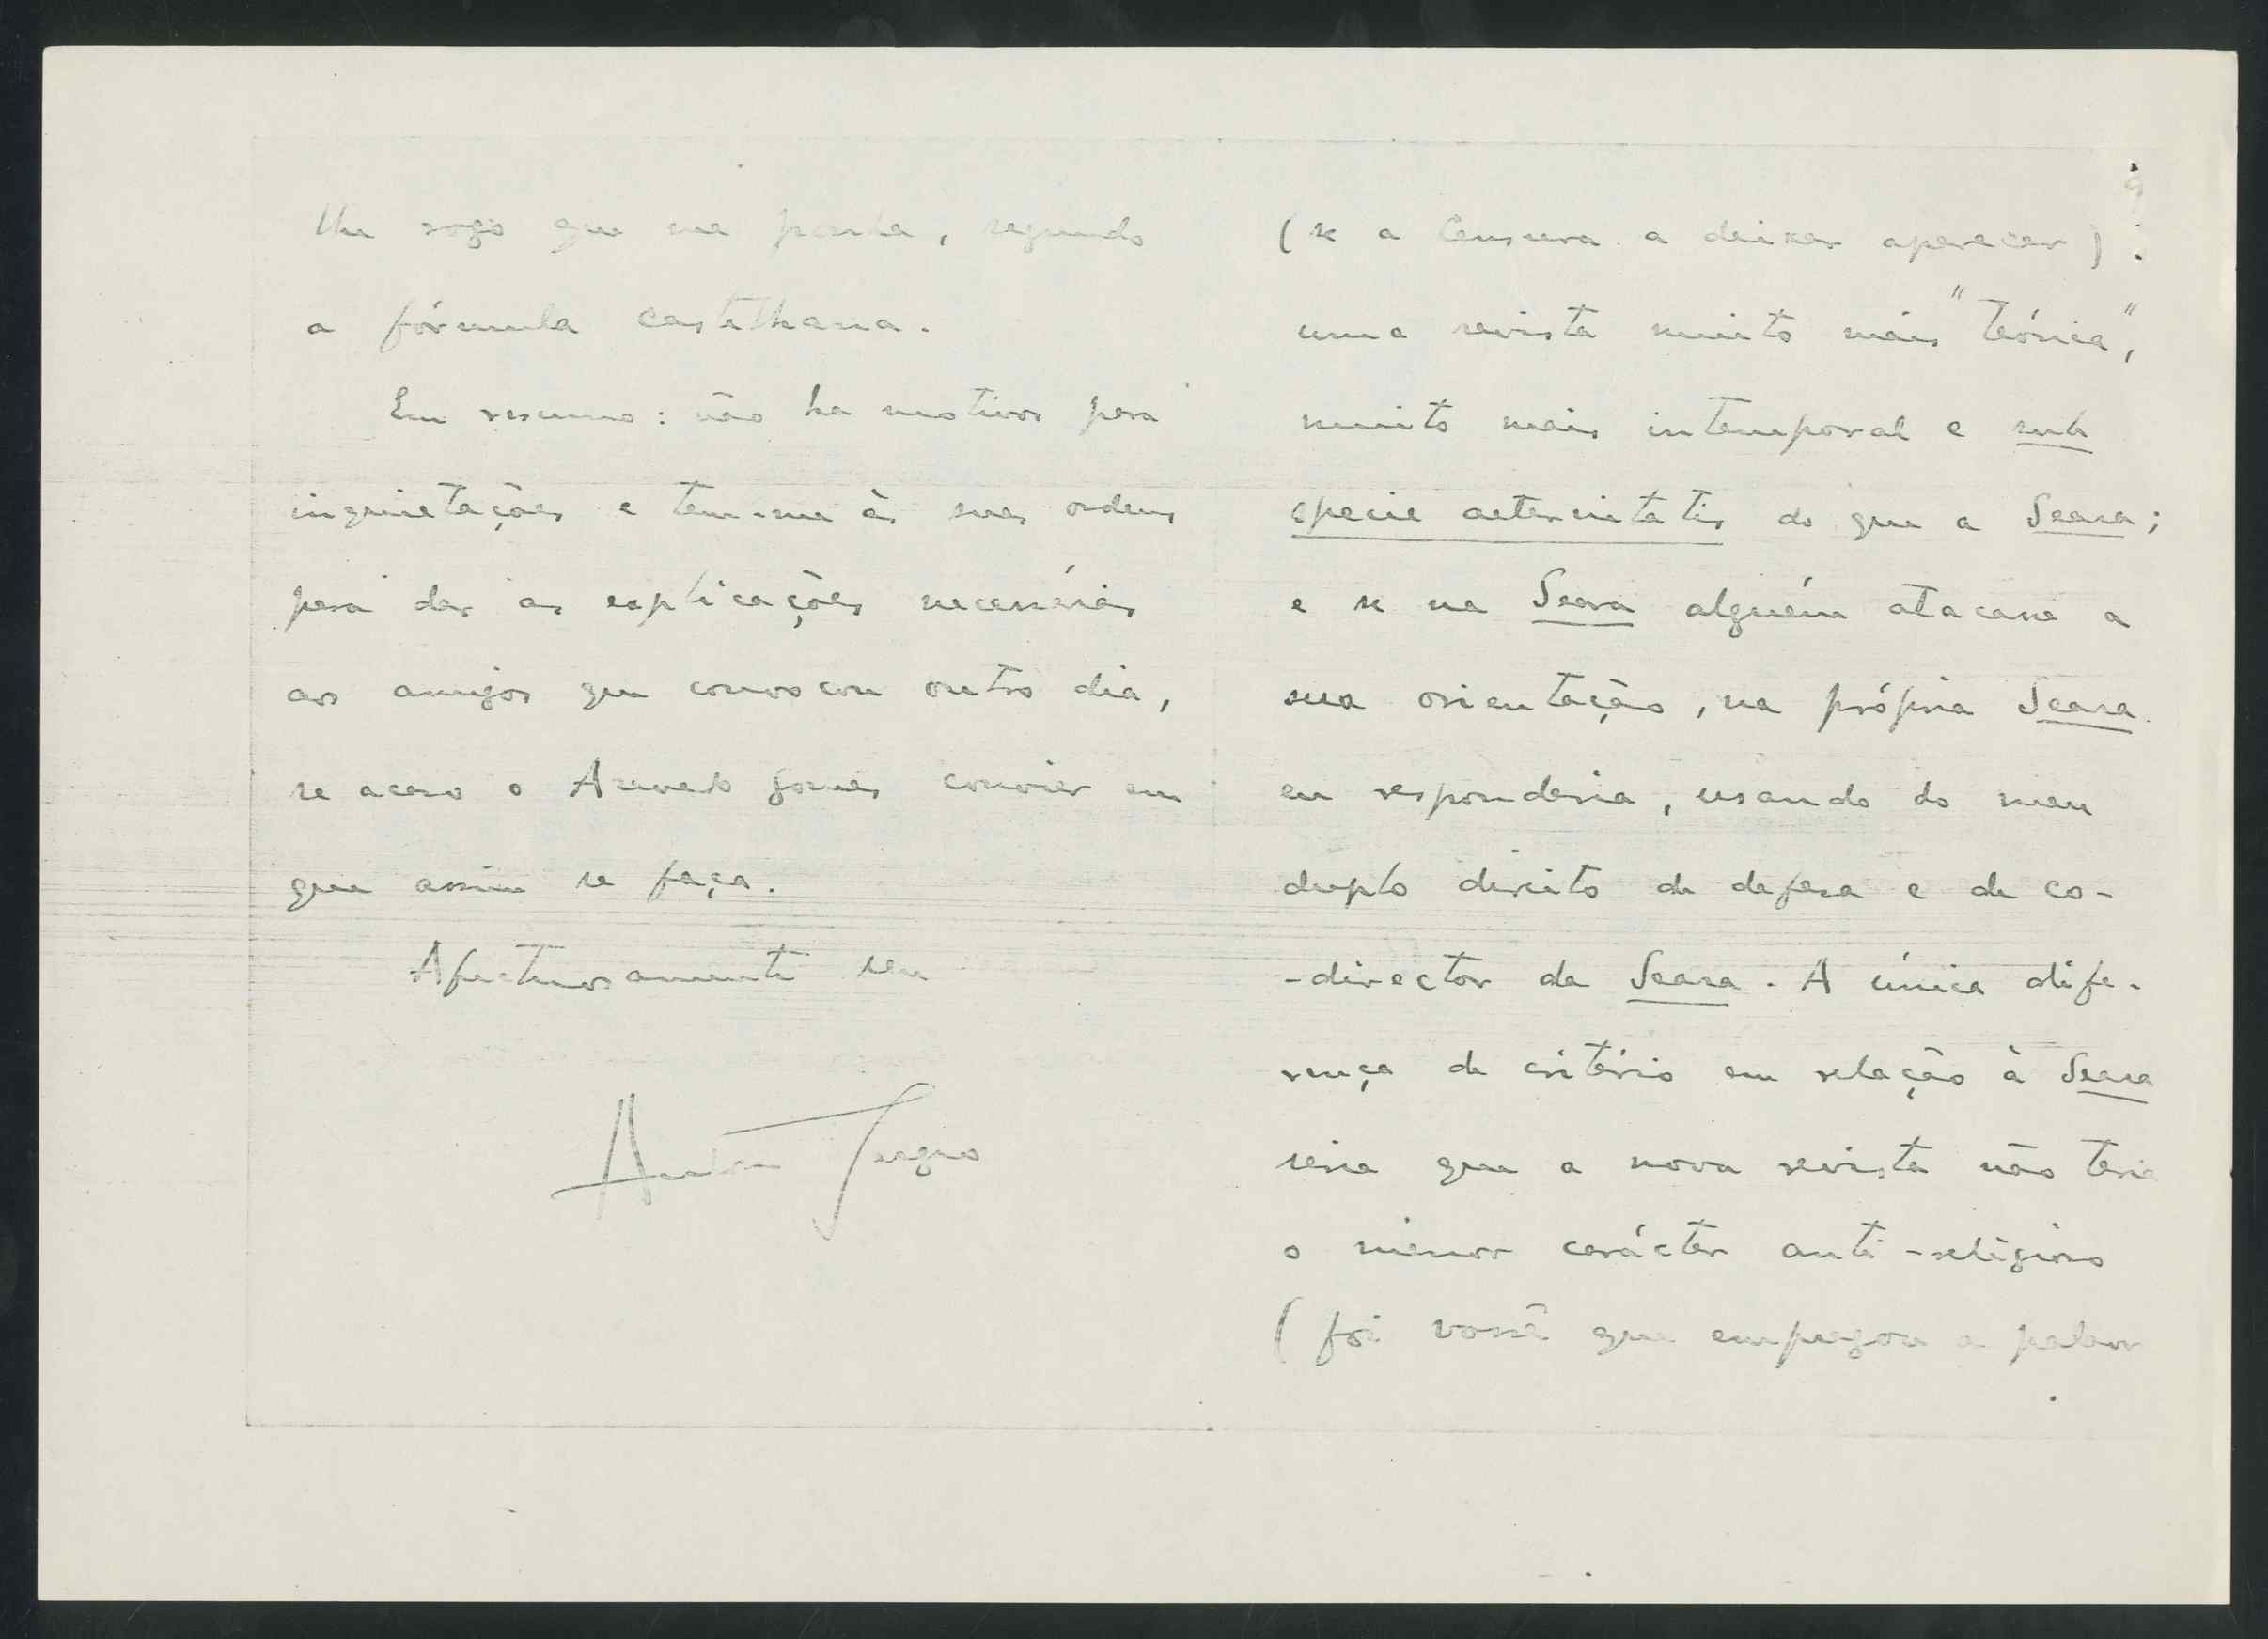 lhe rogo que me ponha, segundo
a fórmula castelhana.
Em resumo: não ha motivos para
inquietações e tem-me às suas ordens
para dar as explicações necessárias
aos amigos que convocou outro dia,
se acaso o Azevedo Gomes convier em
que assim se faça.
Afectuosamente seu
António Sérgio
(se a Censura a deixar aparecer)
uma revista muito mais "teórica",
muito mais intemporal e sub
specie aeternitatis do que a Seara;
e se na Seara alguém atacasse a
sua orientação, na própria Seara
eu responderia, usando do meu
duplo direito de defesa e de co-
-director da Seara. A única dife-
rença de critério em relação à Seara
seria que a nova revista não teria
o menor carácter anti-religioso
(foi você que empregou a palavr